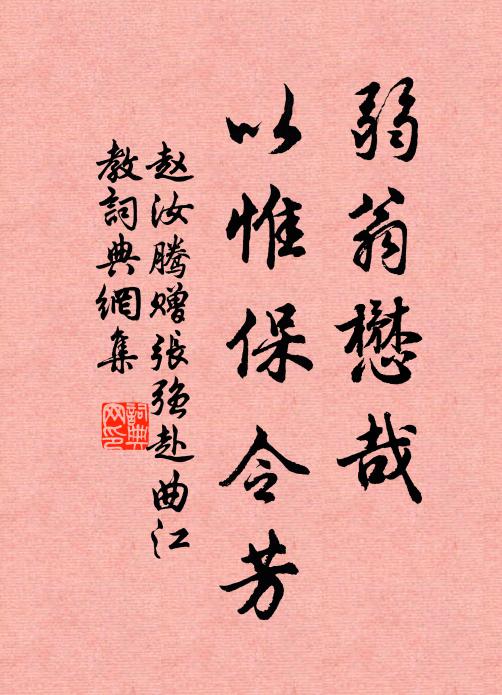 弱翁懋哉
以惟保令芳
赵汝腾赠張强赴曲江
教詞典網集
詞典
网印